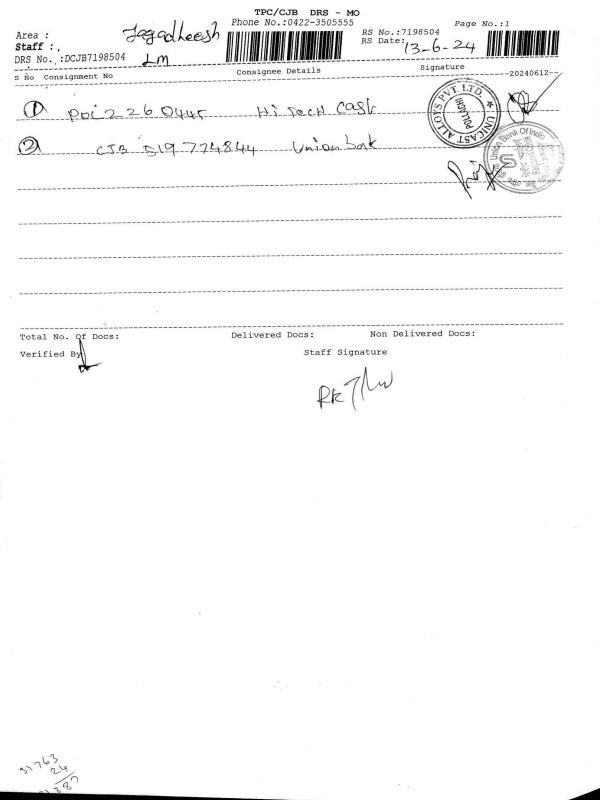 TPC/CJB DRS - MO
Phone No.:0422-3505555
Page No.:1
Area :
Jagadheesh
RS No.:7198504
Staff :,
RS Date:
13-6-24
DRS No.,:DCJB7198504
LM
S No Consignment No
Consignee Details
Signature
20240612
① 
Hi Tech Cast
UNICAST ALLOYS PVT. LTD.
POLLACHI
② CJB 519774844 Union bank
Union Bank Of India
Total No. Of Docs:
Delivered Docs:
Non Delivered Docs:
Verified By
Staff Signature
31763
24